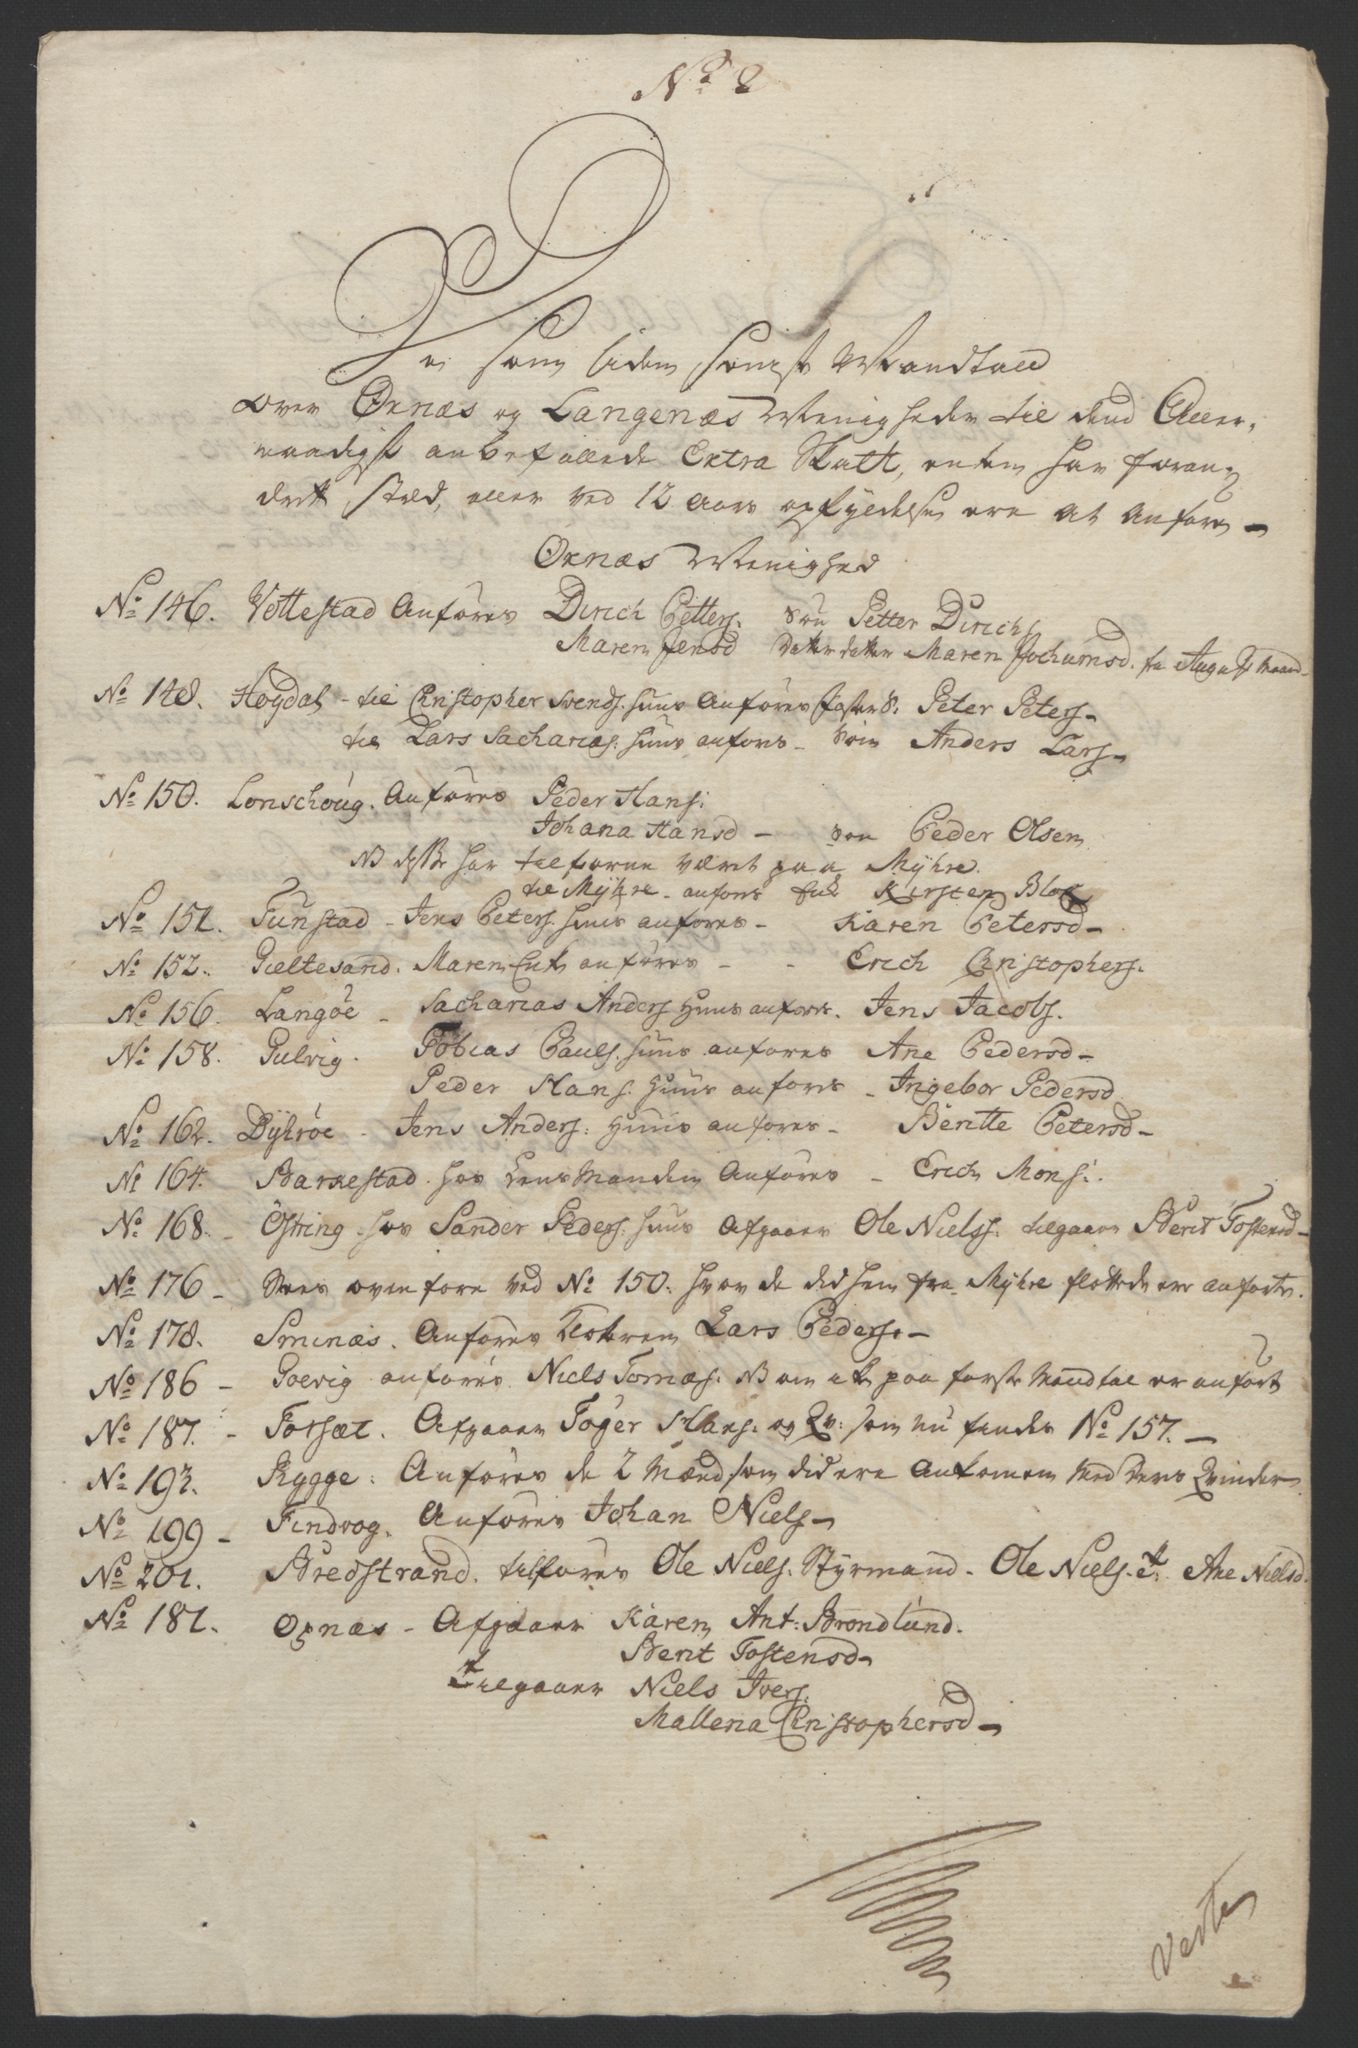 No 2
De som siden sidst Mandtall
over Øxnæs og Langenæs Menigheder til dend Aller,
naadigst anbefallede Extra Skatt, enten har foran,
dret stæd, eller ved 12 aars opfyldelse ere at anføre –
Øxnæs Menighed
No 146. Vottestad Anføres Dirich Petters. Søn Petter Dirichs
Maren Jensd Datter datter Maren Jochumsd. fra Augusti Maan
No 148. Høydal – til Christopher Svends. huus Anføres foster S: Peter Peters –
til Lars Sacharias: huus anføres – Søn Anders Lars –
No 150. Lonschoug. Anføres Peder Hans:
Johana Hansd – Søn Peder Olsen
NB disse har tilforne været paa Myhre.
til Myhre – anføres Enk Kirsten Blok
No 151. Tunstad – Jens Peters. huus anføres – Karen Petersd –
No 152. Gieltesand. Maren Enk anføres – – Erich Christophers.
No 156. Langøe – Sacharias Anders huus anføres. Jens Jacobs.
No 158. Gulvig. Tobias Pauls. huus anføres Ane Pedersd –
Peder Hans. huus anføres – Ingebor Pedersd
No 162. Dyhrøe – Jens Anders: huus anføres – Bentte Petersd –
No 164. Barkestad. hos Lens Manden Anføres – Erich Mons:.
No 168. – Østring. hos Sander Peders. huus Afgaaer Ole Nielss. tilgaaer Berit Tostensd –
No 176 – Sees oven fore ved No 150. hvor de did hen fra Myhre fløttede ere anførte.
No 178. Sminæs. Anføres Lars Peders. –
No 186 – Goevig anføres Niels Tomæs. NB om ek paa forste Mandtal er anført
No 187. – Forsæt. Afgaaer Toger Hans. og Qv: som nu findes No 157. –
No 193. Rygge. Anføres de 2 Mænd som did ere Ankomen med deres Qvinder
No 199 – Findvog. Anføres Johan Niels –
No 201. Bredstrand. tilføres Ole Niels. Styrmand – Ole Niels. &. Ane Nielsd.
No 181. Øxnæs – Afgaaer Karen Ant: Brondlund.
Berit Tostensd –
Tilgaaer Niels Ivers.
Mallena Christophersd –
Verte